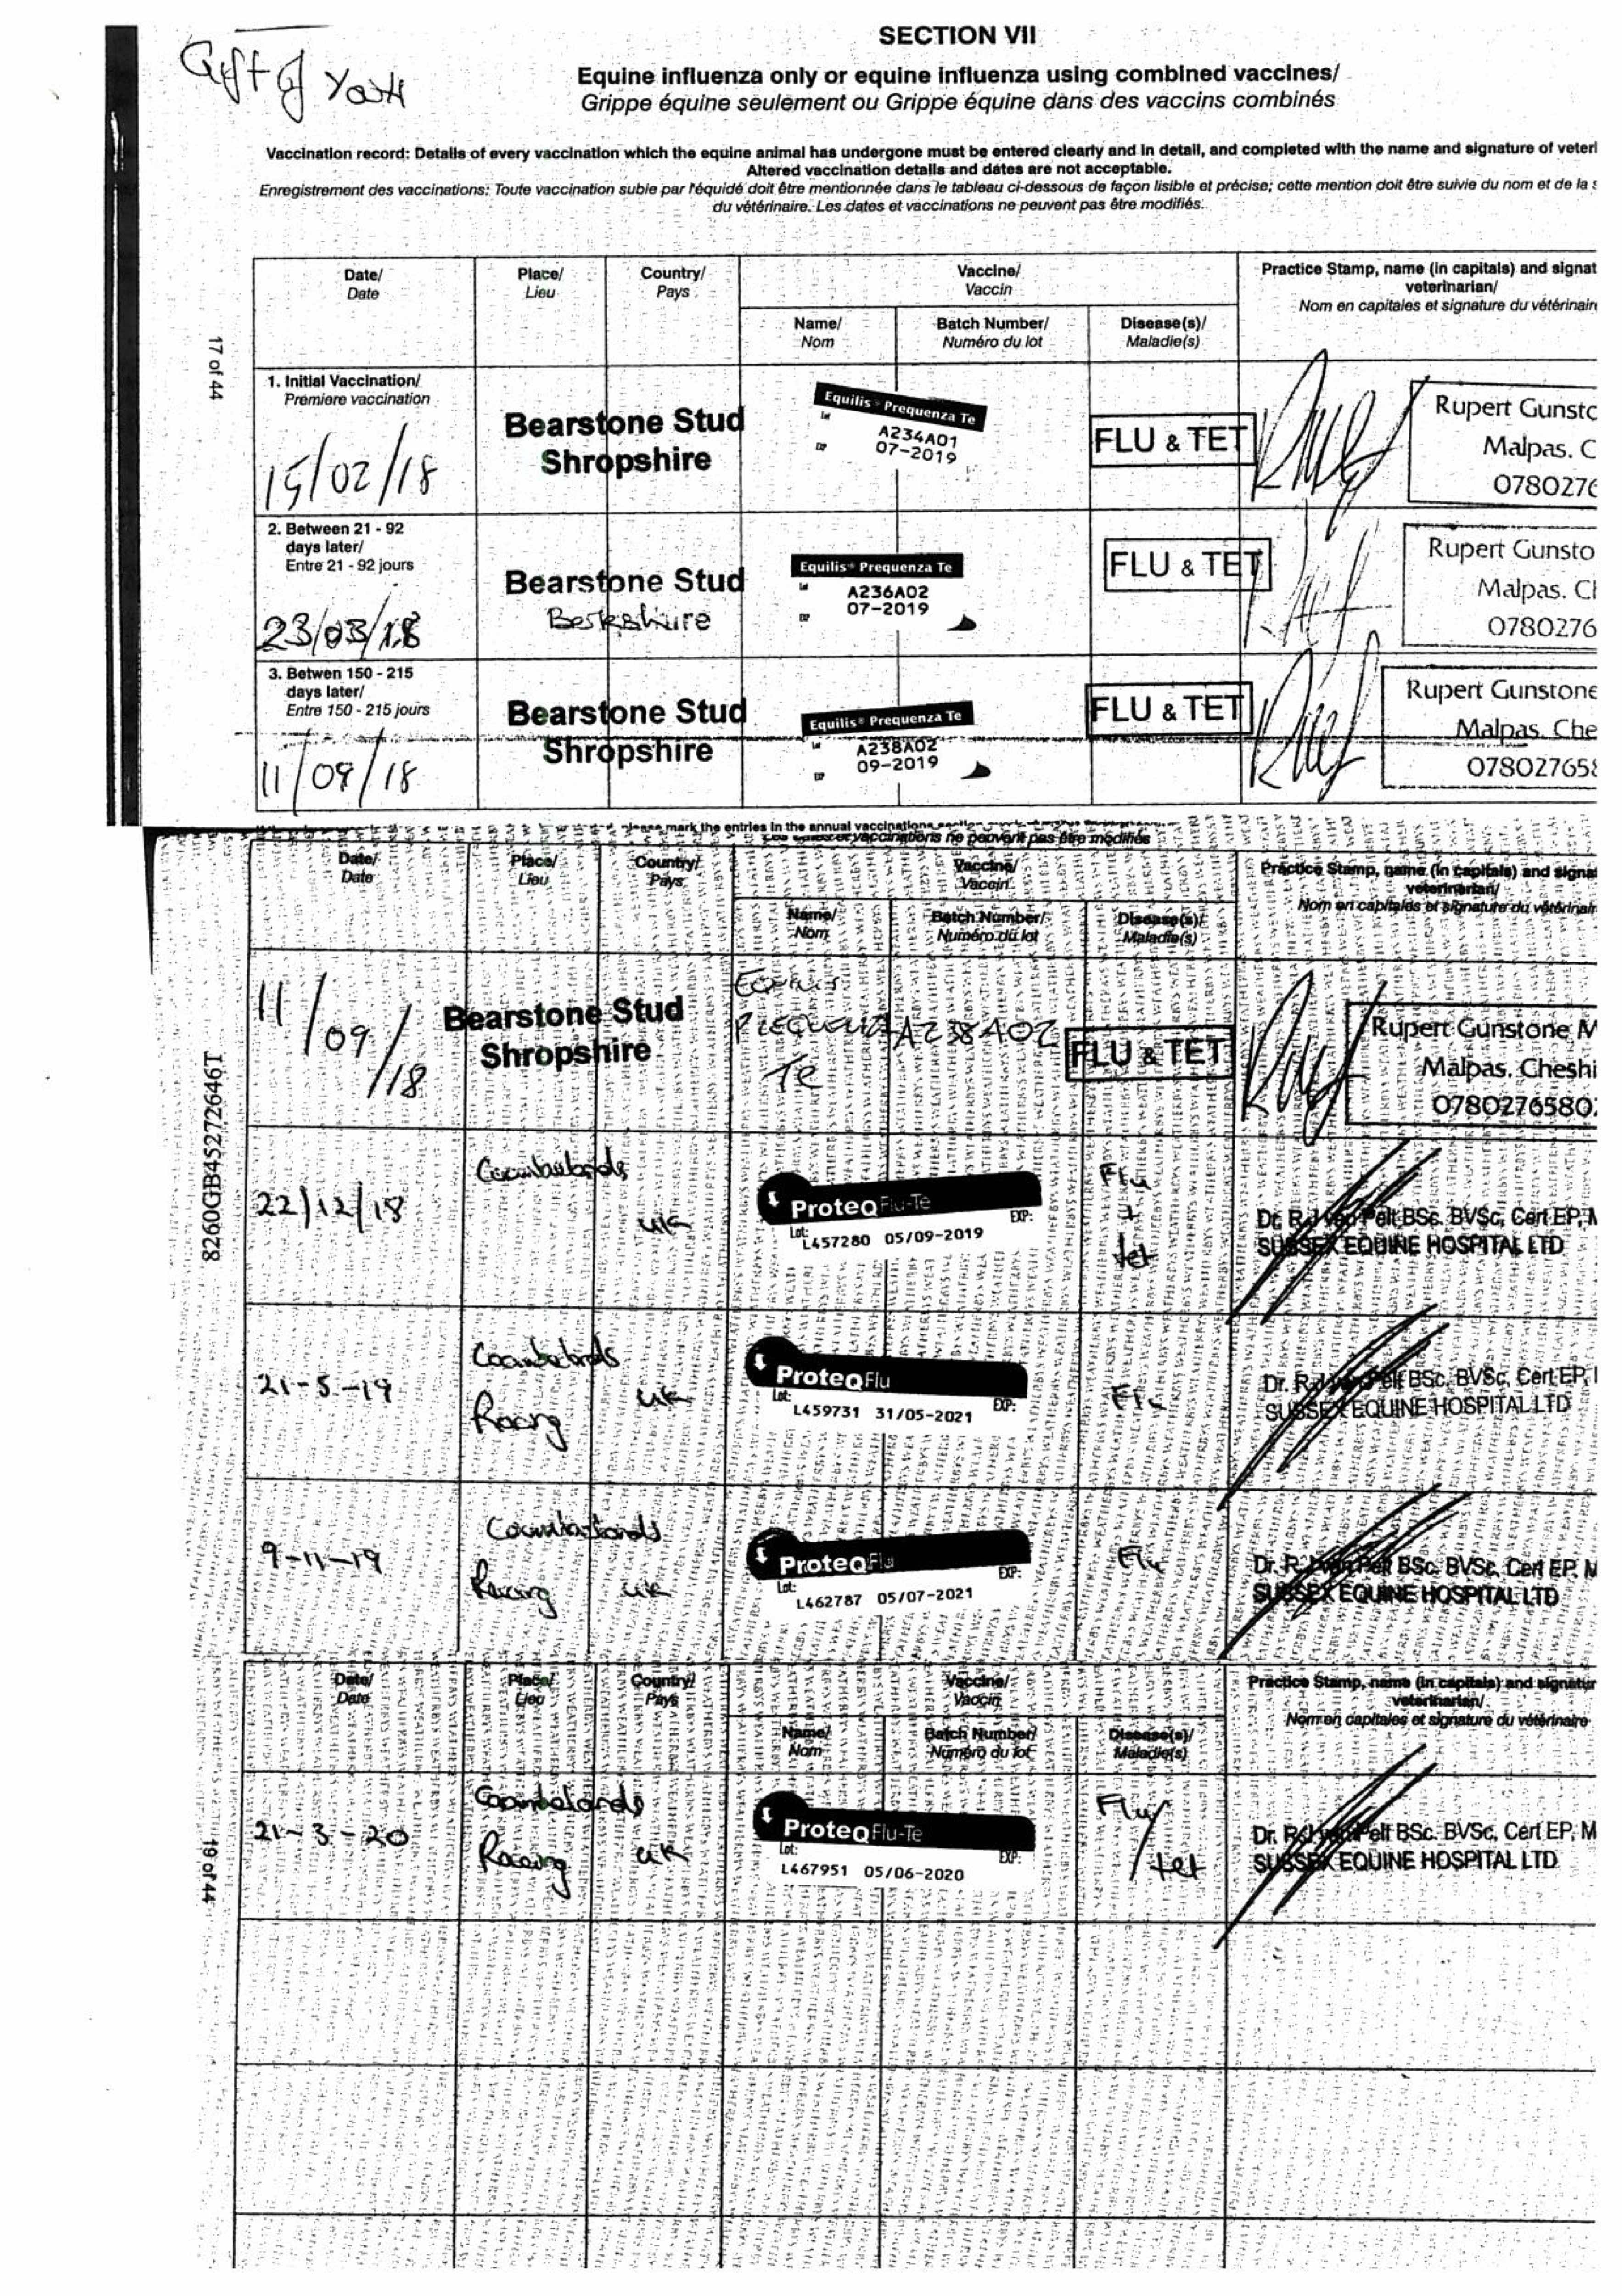 Gift of Youth
SECTION VII
Equine influenza only or equine influenza using combined vaccines/
Grippe équine seulement ou Grippe équine dans des vaccins combinés
Vaccination record: Details of every vaccination which the equine animal has undergone must be entered clearly and in detail, and completed with the name and signature of veteri
Altered vaccination details and dates are not acceptable.
Enregistrement des vaccinations: Toute vaccination subie par l'équidé doit être mentionnée dans le tableau ci-dessous de façon lisible et précise; cette mention doit être suivie du nom et de la s
du vétérinaire. Les dates et vaccinations ne peuvent pas être modifiés.
17 of 44
Date/
Date
Place/
Lieu
Country/
Pays
Vaccine/
Vaccin
Practice Stamp, name (in capitals) and signat
veterinarian/
Nom en capitales et signature du vétérinaire
Name/
Nom
Batch Number/
Numéro du lot
Disease(s)/
Maladie(s)
1. Initial Vaccination/
Premiere vaccination
15/02/18
Bearstone Stud
Shropshire
Equilis® Prequenza Te
Lot
A234A01
EXP
07-2019
FLU & TET
Rupert Gunsto
Malpas. C
0780276
2. Between 21 - 92
days later/
Entre 21 - 92 jours
23/03/18
Bearstone Stud
Berkshire
Equilis® Prequenza Te
Lot
A236A02
EXP
07-2019
FLU & TET
Rupert Gunsto
Malpas. Ch
0780276
3. Betwen 150 - 215
days later/
Entre 150 - 215 jours
11/09/18
Bearstone Stud
Shropshire
Equilis® Prequenza Te
Lot
A238A02
EXP
09-2019
FLU & TET
Rupert Gunstone
Malpas. Che
078027658
please mark the entries in the annual vaccinations
vaccinations ne peuvent pas être modifiés
8260GB45272646T
Date/
Date
Place/
Lieu
Country/
Pays
Vaccine/
Vaccin
Practice Stamp, name (in capitals) and signat
veterinarian/
Nom en capitales et signature du vétérinaire
Name/
Nom
Batch Number/
Numéro du lot
Disease(s)/
Maladie(s)
11/09/18
Bearstone Stud
Shropshire
Equilis
Prequenza
Te
A238A02
FLU & TET
Rupert Gunstone M
Malpas. Cheshi
0780276580
22/12/18
Coombelands
UK
ProteqFlu-Te
Lot: EXP:
L457280 05/09-2019
Flu
+
tet
Dr. R J van Pelt BSc. BVSc, Cert EP, M
SUSSEX EQUINE HOSPITAL LTD
21-5-19
Coombelands
Racing
UK
ProteqFlu
Lot: EXP:
L459731 31/05-2021
Flu
Dr. R J van Pelt BSc. BVSc, Cert EP,
SUSSEX EQUINE HOSPITAL LTD
9-11-19
Coombelands
Racing
UK
ProteqFlu
Lot: EXP:
L462787 05/07-2021
Flu
Dr. R J van Pelt BSc. BVSc, Cert EP, M
SUSSEX EQUINE HOSPITAL LTD
19 of 44
Date/
Date
Place/
Lieu
Country/
Pays
Vaccine/
Vaccin
Practice Stamp, name (in capitals) and signatur
veterinarian/
Nom en capitales et signature du vétérinaire
Name/
Nom
Batch Number/
Numéro du lot
Disease(s)/
Maladie(s)
21-3-20
Coombelands
Racing
UK
ProteqFlu-Te
Lot: EXP:
L467951 05/06-2020
Flu/
tet
Dr. R J van Pelt BSc. BVSc, Cert EP, M
SUSSEX EQUINE HOSPITAL LTD